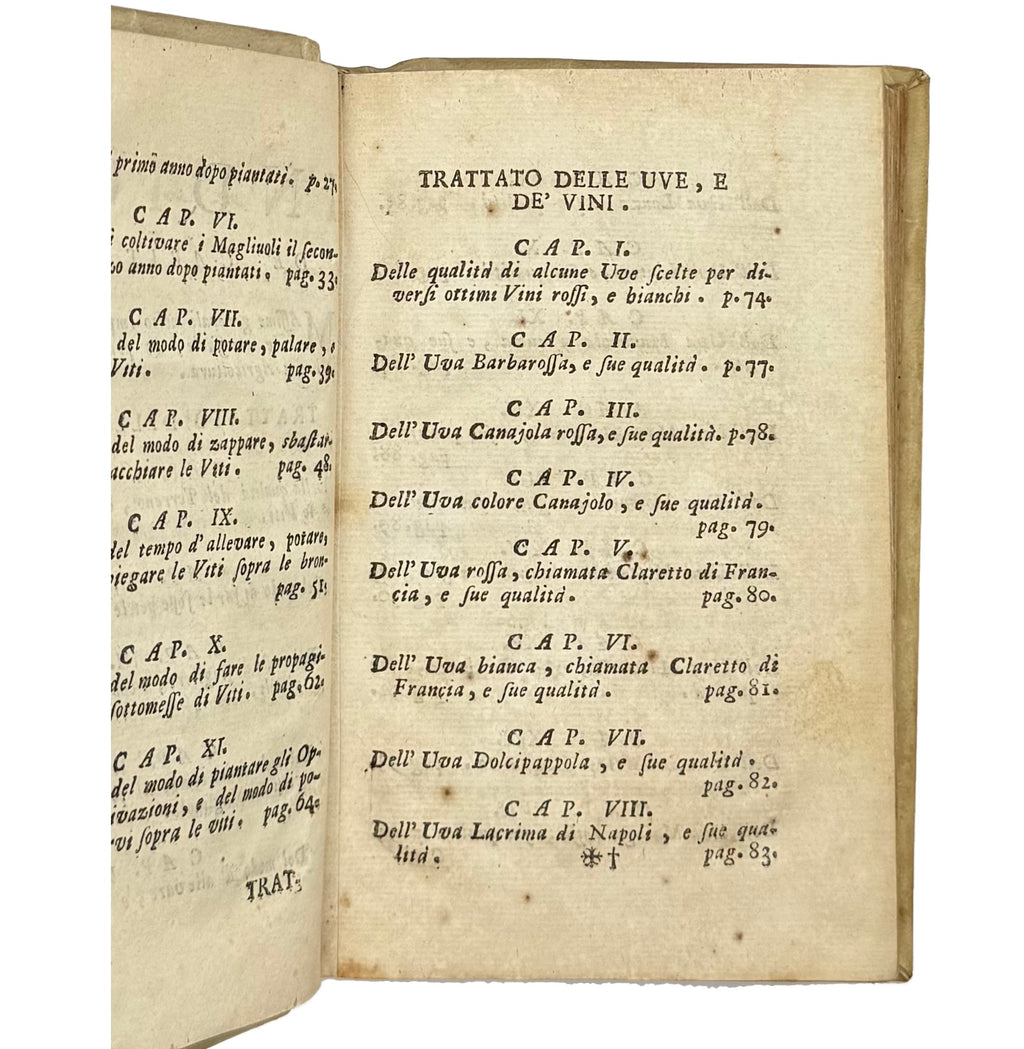 primo anno dopo piantati. p. 27.
CAP. VI.
coltivare i Magliuoli il ſecon-
anno dopo piantati. pag. 33.
CAP. VII.
del modo di potare, palare, e
Viti. pag. 39.
CAP. VIII.
del modo di zappare, sbaſtar-
acchiare le Viti. pag. 48.
CAP. IX.
del tempo d'allevare, potare,
piegare le Viti ſopra le bron-
pag. 51.
CAP. X.
del modo di fare le propagi-
ſottomeſſe di Viti. pag. 62.
CAP. XI.
del modo di piantare gli Op-
ivazioni, e del modo di po-
vi ſopra le viti. pag. 64.
TRAT-
TRATTATO DELLE UVE, E
DE' VINI.
CAP. I.
Delle qualità di alcune Uve ſcelte per di-
verſi ottimi Vini roſſi, e bianchi. p. 74.
CAP. II.
Dell' Uva Barbaroſſa, e ſue qualità. p. 77.
CAP. III.
Dell' Uva Canajola roſſa, e ſue qualità. p. 78.
CAP. IV.
Dell' Uva colore Canajolo, e ſue qualità.
pag. 79.
CAP. V.
Dell' Uva roſſa, chiamata Claretto di Fran-
cia, e ſue qualità. pag. 80.
CAP. VI.
Dell' Uva bianca, chiamata Claretto di
Francia, e ſue qualità. pag. 81.
CAP. VII.
Dell' Uva Dolcipappola, e ſue qualità.
pag. 82.
CAP. VIII.
Dell' Uva Lacrima di Napoli, e ſue qua-
lità. ❋† pag. 83.